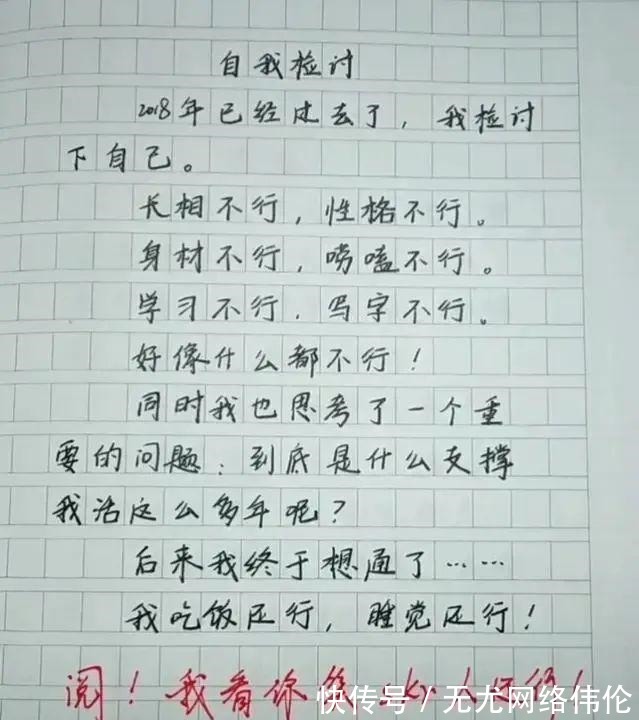 自我检讨
2018年已经过去了，我检讨
下自己。
长相不行，性格不行。
身材不行，唠嗑不行。
学习不行，写字不行。
好像什么都不行！
同时我也思考了一个重
要的问题：到底是什么支撑
我活这么多年呢？
后来我终于想通了……
我吃饭还行，睡觉还行！
阅！我看你
快传号/无尤网络伟伦